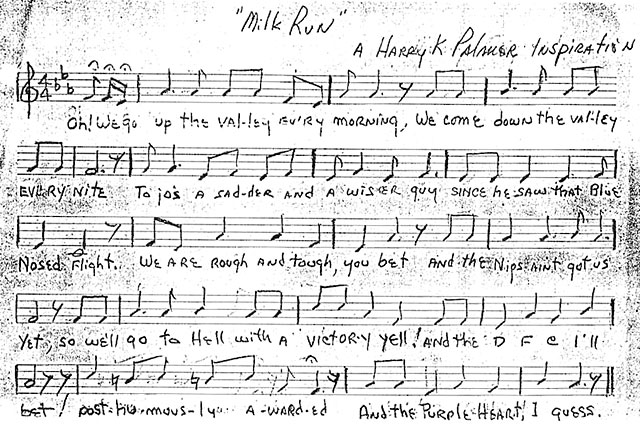 "Milk Run"
A Harry K Palmer Inspiration
Oh! We go up the val-ley every morning, We come down the val-ley
every nite To jo's a sad-der and a wiser guy since he saw that Blue
Nosed Flight. We are rough and tough, you bet And the Nips aint got us
Yet, so we'll go to Hell with a victory yell! And the D F C I'll
get! post-hu-mous-ly a-ward-ed And the Purple Heart, I guess.